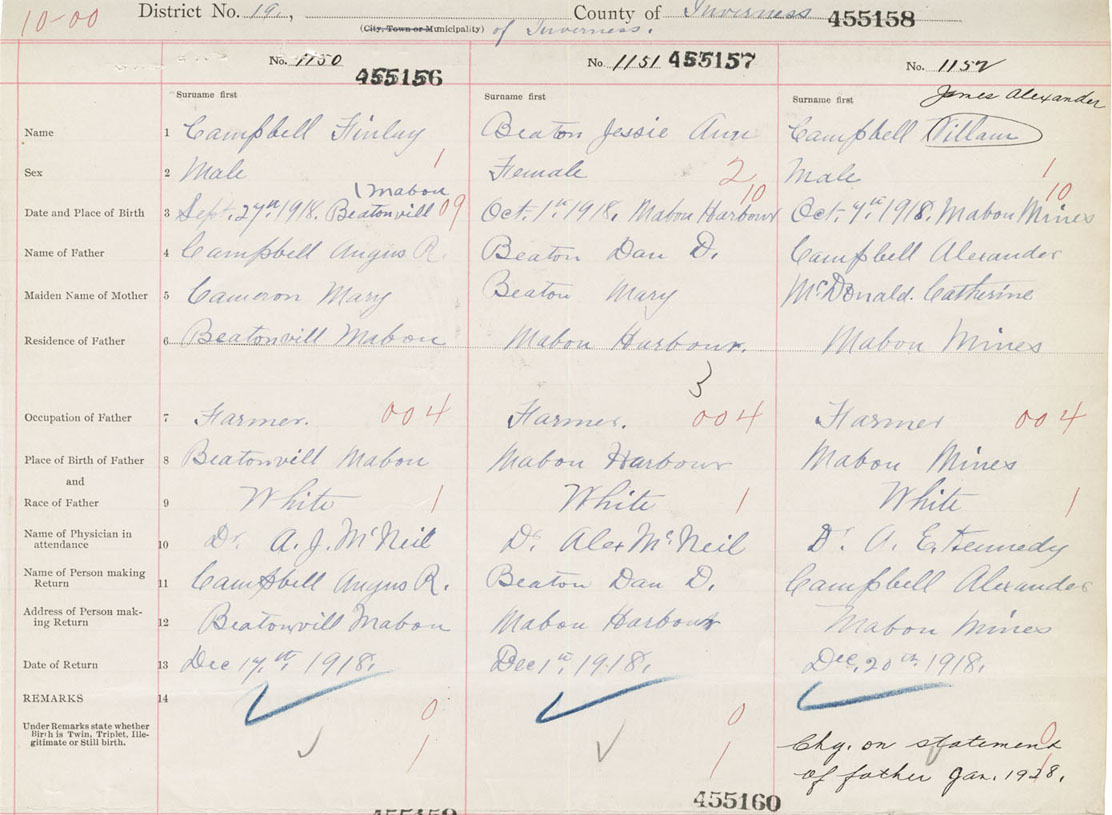 10-00 District No. 19, County of Inverness 455158
(City, Town or Municipality) of Inverness.
No. 1150 455156 No. 1151 455157 No. 1152
Surname first Surname first Surname first James Alexander
Name 1 Campbell Finlay Beaton Jessie Ann Campbell
Sex 2 Male 1 Female 2 Male 1
Mabou 10 10
Date and Place of Birth 3 Sept. 27th 1918. Beatonvill 09 Oct. 1st 1918. Mabou Harbour Oct. 7th 1918. Mabou Mines
Name of Father 4 Campbell Angus R. Beaton Dan D. Campbell Alexander
Maiden Name of Mother 5 Cameron Mary Beaton Mary McDonald. Catherine
Residence of Father 6 Beatonvill Mabou Mabou Harbour. Mabou Mines
3
Occupation of Father 7 Farmer. 004 Farmer. 004 Farmer 004
Place of Birth of Father 8 Beatonvill Mabou Mabou Harbour Mabou Mines
and
Race of Father 9 White 1 White 1 White 1
Name of Physician in
attendance 10 Dr. A. J. McNeil Dr. Alex McNeil Dr. A. E. Kennedy
Name of Person making
Return 11 Campbell Angus R. Beaton Dan D. Campbell Alexander
Address of Person mak-
ing Return 12 Beatonvill Mabou Mabou Harbour Mabou Mines
Date of Return 13 Dec 17th, 1918. Dec 1st, 1918. Dec. 20th 1918.
REMARKS 14
0 0 0
Under Remarks state whether
Birth is Twin, Triplet, Ille-
gitimate or Still birth. 1 1 1
Chg. on statement
of father Jan. 1928.
455159 455160